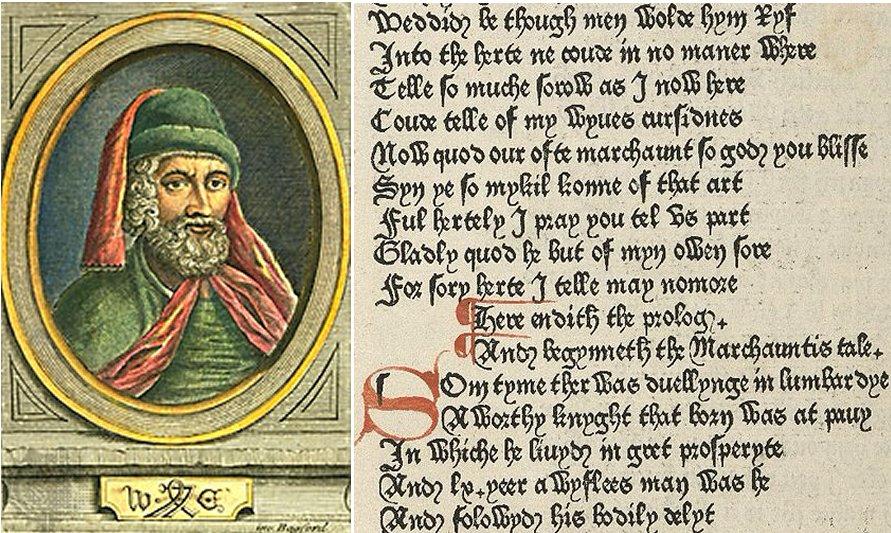 W C
inv. Bagford
Weddid be though men wolde hym ryf
Into the herte ne coude in no maner where
Telle so muche sorow as I now here
Coude telle of my wyues cursidnes
Now quod our oste marchaunt so god you blisse
Syn ye so mykil konne of that art
Ful hertely I pray you tel vs part
Gladly quod he but of myn owen sore
For sory herte I telle may nomore
Here endith the prolog.
And begynneth the Marchauntis tale.
Som tyme ther was duellynge in lumbardye
A worthy knyght that born was at pauy
In whiche he liuyd in gret prosperyte
And lx.yeer a wyflees man was he
And folowyd his bodily delyt